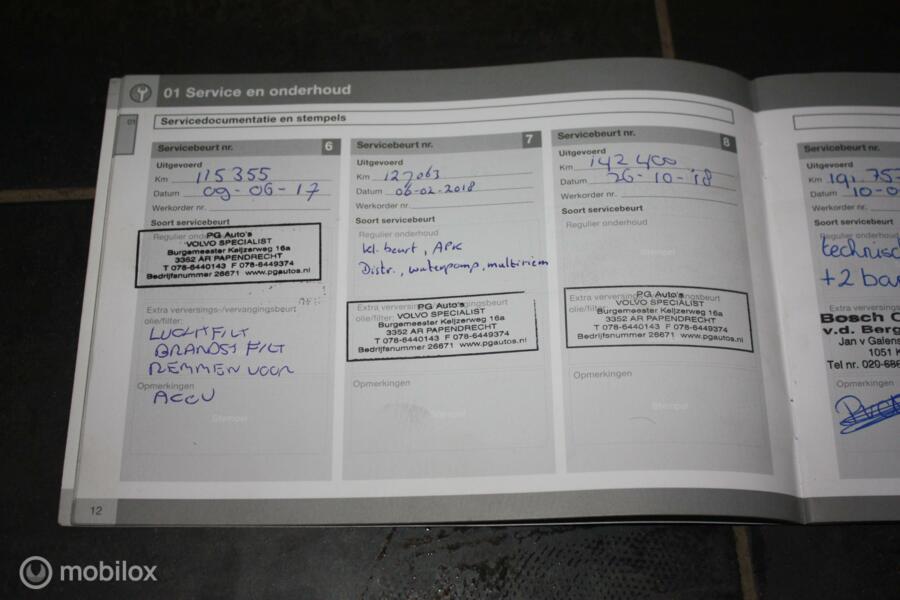 01 Service en onderhoud
01
Servicedocumentatie en stempels
Servicebeurt nr. 6
Uitgevoerd
Km 115355
Datum 09-06-17
Werkorder nr.
Soort servicebeurt
Regulier onderhoud
PG Auto's
VOLVO SPECIALIST
Burgemeester Keijzerweg 16a
3352 AR PAPENDRECHT
T 078-6440143 F 078-6449374
Bedrijfsnummer 26671 www.pgautos.nl
Extra verversings-/vervangingsbeurt
olie/filter:
LUCHTFILT
BRANDST FILT
REMMEN VOOR
Opmerkingen
ACCU
Stempel
Servicebeurt nr. 7
Uitgevoerd
Km 127063
Datum 06-02-2018
Werkorder nr.
Soort servicebeurt
Regulier onderhoud
kl. beurt, APK
Distr., waterpomp, multiriem
Extra verversings-/vervangingsbeurt
olie/filter:
PG Auto's
VOLVO SPECIALIST
Burgemeester Keijzerweg 16a
3352 AR PAPENDRECHT
T 078-6440143 F 078-6449374
Bedrijfsnummer 26671 www.pgautos.nl
Opmerkingen
Stempel
Servicebeurt nr. 8
Uitgevoerd
Km 142400
Datum 26-10-'18
Werkorder nr.
Soort servicebeurt
Regulier onderhoud
Extra verversings-/vervangingsbeurt
olie/filter:
PG Auto's
VOLVO SPECIALIST
Burgemeester Keijzerweg 16a
3352 AR PAPENDRECHT
T 078-6440143 F 078-6449374
Bedrijfsnummer 26671 www.pgautos.nl
Opmerkingen
Stempel
Servicebeurt nr.
Uitgevoerd
Km 191.75
Datum 10-0
Werkorder nr.
Soort servicebeurt
Regulier onderhoud
technisc
+2 ban
Extra verversings
olie/filter:
Bosch C
v.d. Berg
Jan v Galens
1051 K
Tel nr. 020-686
Opmerkingen
12
mobilox